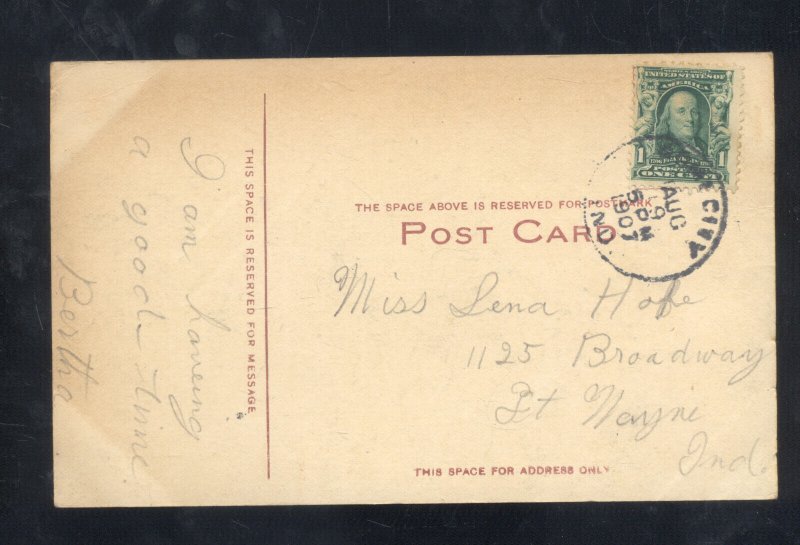 UNITED STATES OF
AMERICA
1 1
POSTAGE
ONE CENT
CITY
AUG
9
5 PM
1907
IND.
THE SPACE ABOVE IS RESERVED FOR POSTMARK
POST CARD
THIS SPACE IS RESERVED FOR MESSAGE
I am haveing
a good time
Bertha
Miss Lena Hofe
1125 Broadway
Ft Wayne
Ind.
THIS SPACE FOR ADDRESS ONLY